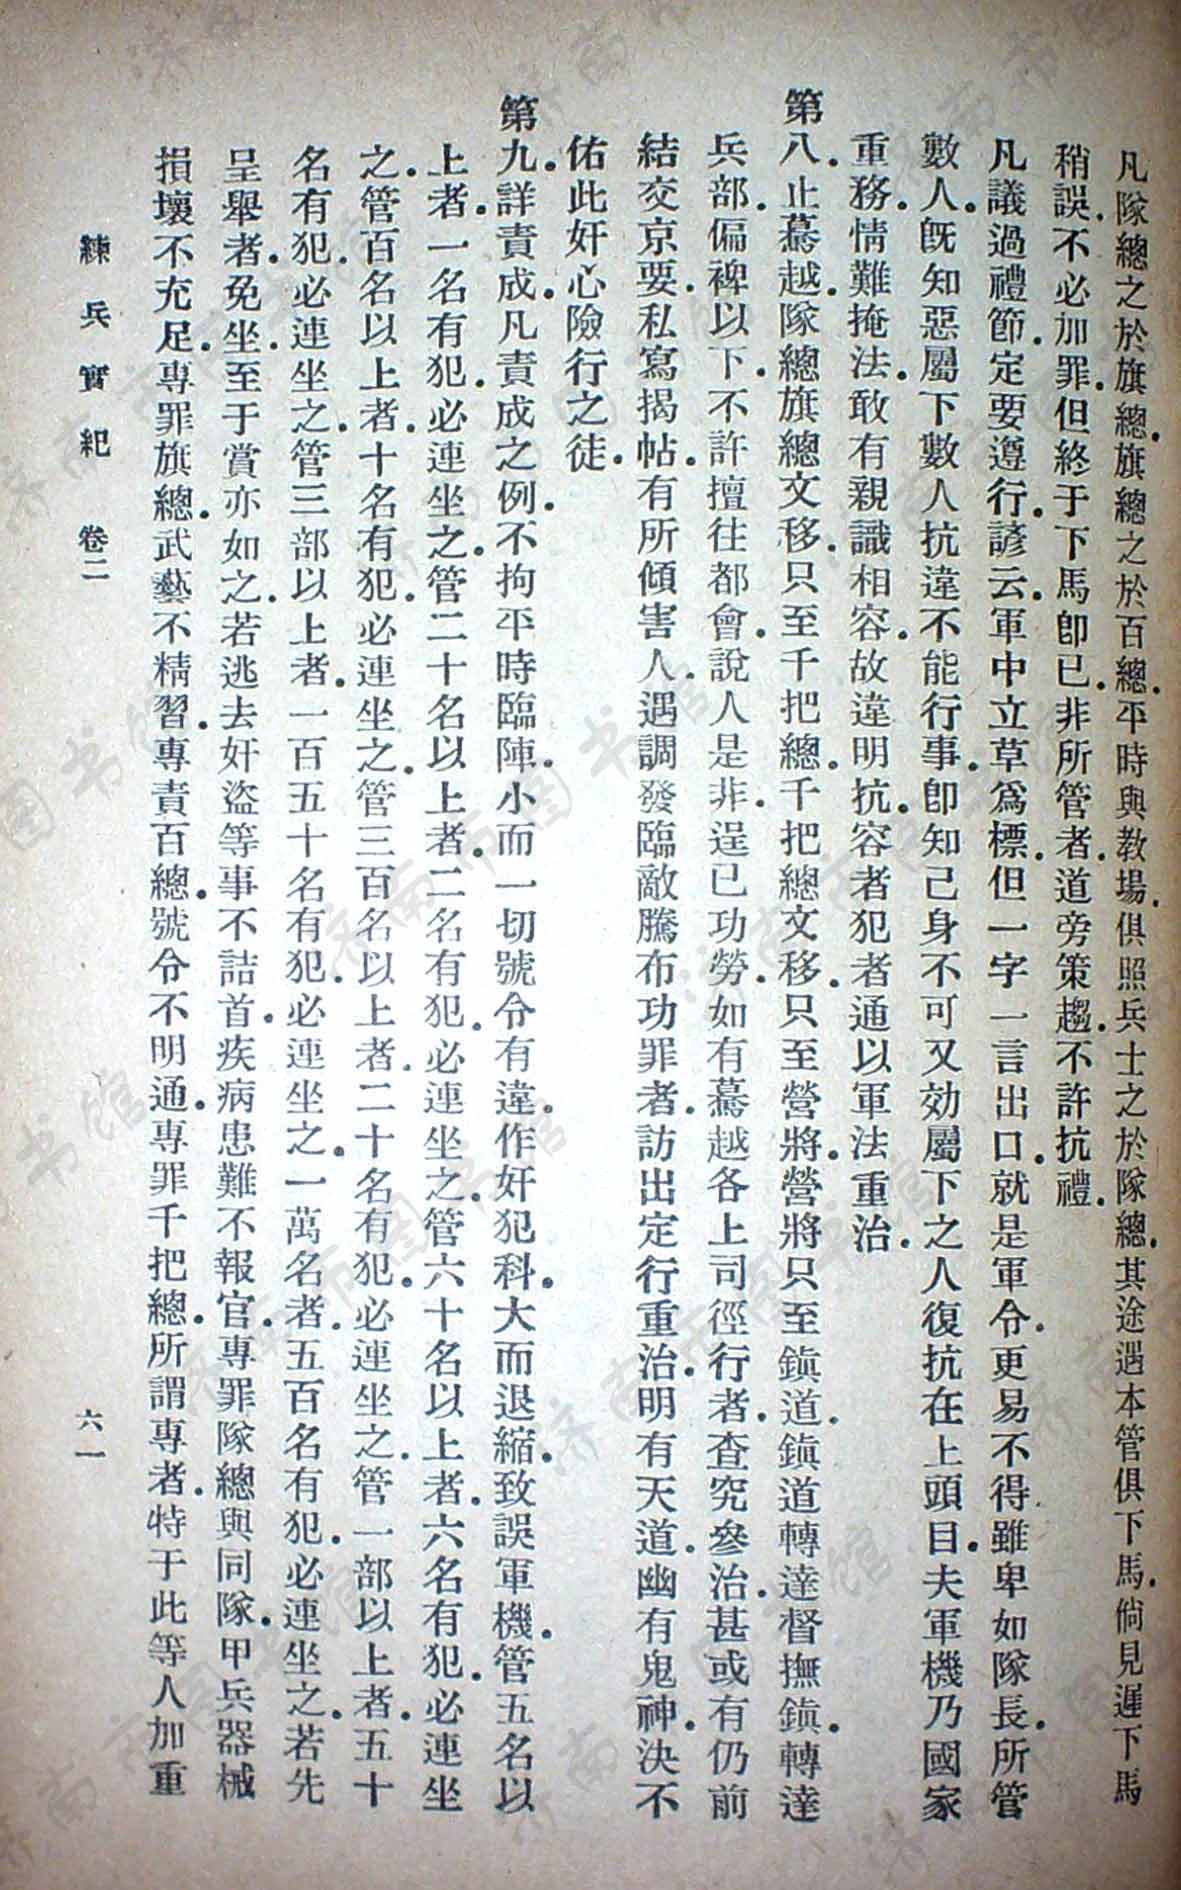 凡隊總之於旗總.旗總之於百總.平時與教場.俱照兵士之於隊總.其途遇本管俱下馬.倘見遲下馬
稍誤.不必加罪.但終于下馬卽已.非所管者.道旁策趨.不許抗禮.
凡議過禮節.定要遵行.諺云.軍中立草爲標.但一字一言出口.就是軍令.更易不得.雖卑如隊長.所管
數人.旣知惡屬下數人抗違不能行事.卽知己身不可又効屬下之人復抗在上頭目.夫軍機乃國家
重務.情難掩法.敢有親識相容.故違明抗.容者犯者通以軍法重治.
第八.止驀越.隊總旗總文移.只至千把總.千把總文移.只至營將.營將只至鎭道.鎭道轉達督撫鎭.轉達
兵部.偏裨以下.不許擅往都會.說人是非.逞已功勞.如有驀越各上司徑行者.查究參治.甚或有仍前
結交京要.私寫揭帖.有所傾害人.遇調發臨敵騰布功罪者.訪出定行重治.明有天道.幽有鬼神.決不
佑此奸心險行之徒.
第九.詳責成.凡責成之例.不拘平時臨陣.小而一切號令有違.作奸犯科.大而退縮.致誤軍機.管五名以
上者.一名有犯.必連坐之.管二十名以上者.二名有犯.必連坐之.管六十名以上者.六名有犯.必連坐
之.管百名以上者.十名有犯.必連坐之.管三百名以上者.二十名有犯.必連坐之.管一部以上者.五十
名有犯.必連坐之.管三部以上者.一百五十名有犯.必連坐之.一萬名者.五百名有犯.必連坐之.若先
呈舉者.免坐.至于賞亦如之.若逃去奸盜等事不詰首.疾病患難不報官.專罪隊總與同隊.甲兵器械
損壞不充足.專罪旗總.武藝不精習.專責百總.號令不明通.專罪千把總.所謂專者.特于此等人加重
練兵實紀　卷二　六一
济南市图书馆